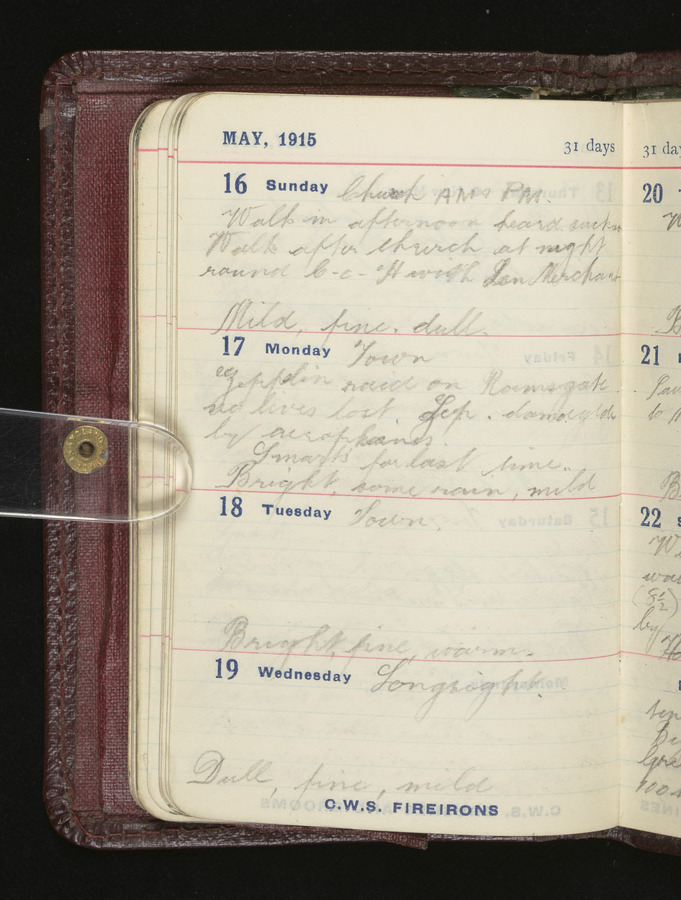 MAY, 1915 31 days
16 Sunday Church AM & PM.
Walk in afternoon heard
Walk after church at night
round C-c-H with Len Merchant
Mild, fine. dull.
17 Monday Town
Zeppelin raid on Ramsgate
no lives lost. Zep. damaged
by aeroplanes.
Smarts for last time.
Bright, some rain, mild
18 Tuesday Town.
Bright, fine, warm.
19 Wednesday Longsight.
Dull, fine, mild
C.W.S. FIREIRONS
31 da
20
21
22
(8½)
by